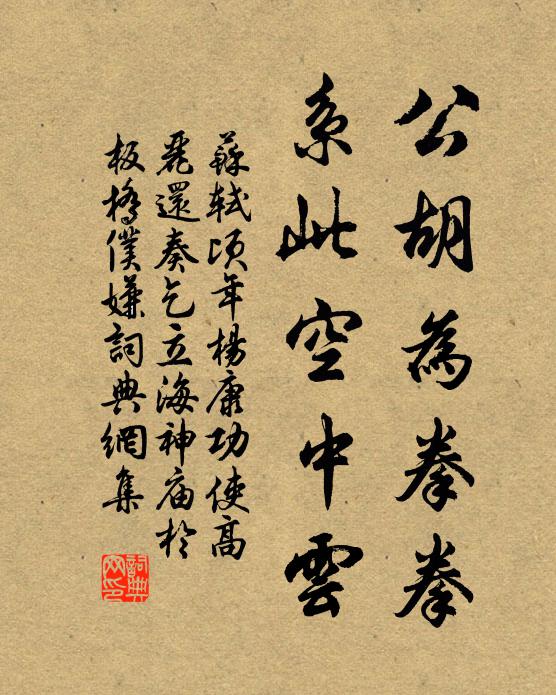 公胡為拳拳
系此空中雲
蘇軾頃年楊康功使高
麗還奏乞立海神廟於
板橋僕嫌詞典網集
詞典
网印